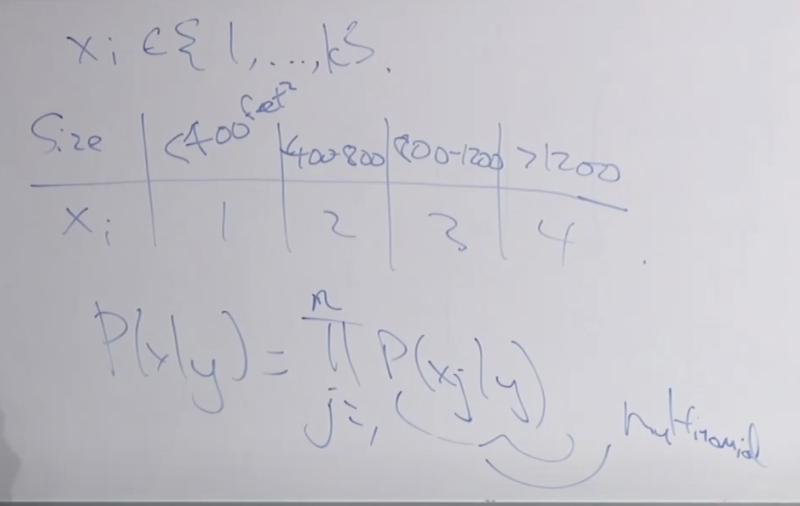 xᵢ ∈ {1, ..., k}.
Size | <400 feet² | 400-800 | 800-1200 | >1200
xᵢ | 1 | 2 | 3 | 4
P(x|y) = ∏ⁿⱼ₌₁ P(xⱼ|y)
multinomial